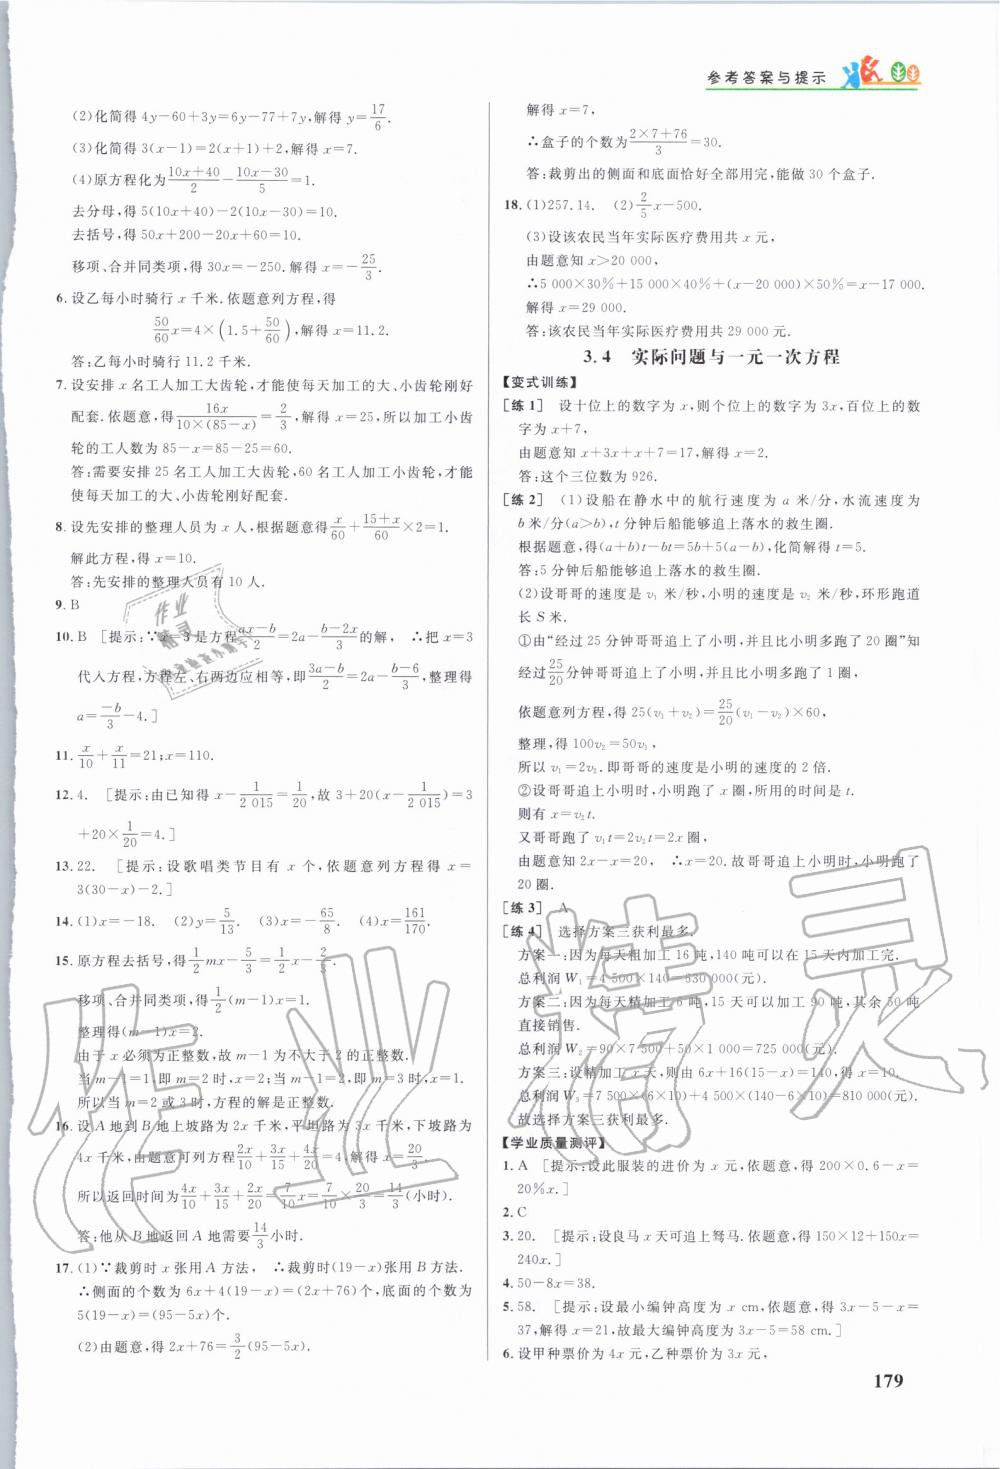 参考答案与提示
(2)化简得 4y-60+3y=6y-77+7y,解得 y=17/6.
(3)化简得 3(x-1)=2(x+1)+2,解得 x=7.
(4)原方程化为 (10x+40)/2-(10x-30)/5=1.
去分母,得 5(10x+40)-2(10x-30)=10.
去括号,得 50x+200-20x+60=10.
移项、合并同类项,得 30x=-250.解得 x=-25/3.
6. 设乙每小时骑行 x 千米.依题意列方程,得
50/60 x=4×(1.5+50/60),解得 x=11.2.
答:乙每小时骑行 11.2 千米.
7. 设安排 x 名工人加工大齿轮,才能使每天加工的大、小齿轮刚好
配套.依题意,得 16x/(10×(85-x))=2/3,解得 x=25,所以加工小齿
轮的工人数为 85-x=85-25=60.
答:需要安排 25 名工人加工大齿轮,60 名工人加工小齿轮,才能
使每天加工的大、小齿轮刚好配套.
8. 设先安排的整理人员为 x 人,根据题意得 x/60+(15+x)/60×2=1.
解此方程,得 x=10.
答:先安排的整理人员有 10 人.
9. B
10. B [提示:∵x=3是方程(ax-b)/2=2a-(b-2x)/3的解, ∴把 x=3
代入方程,方程左、右两边应相等,即(3a-b)/2=2a-(b-6)/3,整理得
a=-b/3-4.]
11. x/10+x/11=21;x=110.
12. 4. [提示:由已知得 x-1/2 015=1/20,故 3+20(x-1/2 015)=3
+20×1/20=4.]
13. 22. [提示:设歌唱类节目有 x 个,依题意列方程得 x=
3(30-x)-2.]
14. (1)x=-18. (2)y=5/13. (3)x=-65/8. (4)x=161/170.
15. 原方程去括号,得1/2mx-5/3=1/2x-2/3.
移项、合并同类项,得1/2(m-1)x=1.
整理得(m-1)x=2.
由于 x 必须为正整数,故 m-1 为不大于 2 的正整数.
当 m-1=1,即 m=2 时,x=2;当 m-1=2,即 m=3 时,x=1.
所以当 m=2 或 3 时,方程的解是正整数.
16. 设 A 地到 B 地上坡路为 2x 千米,平坦路为 3x 千米,下坡路为
4x 千米,由题意可列方程2x/10+3x/15+4x/20=4,解得 x=20/3.
所以返回时间为4x/10+3x/15+2x/20=7/10x=7/10×20/3=14/3(小时).
答:他从 B 地返回 A 地需要14/3小时.
17. (1)∵裁剪时 x 张用 A 方法, ∴裁剪时(19-x)张用 B 方法.
∴侧面的个数为 6x+4(19-x)=(2x+76)个,底面的个数为
5(19-x)=(95-5x)个.
(2)由题意,得 2x+76=3/2(95-5x),
解得 x=7,
∴盒子的个数为(2×7+76)/3=30.
答:裁剪出的侧面和底面恰好全部用完,能做 30 个盒子.
18. (1)257.14. (2)2/5x-500.
(3)设该农民当年实际医疗费用共 x 元,
由题意知 x>20 000,
∴5 000×30%+15 000×40%+(x-20 000)×50%=x-17 000.
解得 x=29 000.
答:该农民当年实际医疗费用共 29 000 元.
3.4 实际问题与一元一次方程
【变式训练】
[练 1] 设十位上的数字为 x,则个位上的数字为 3x,百位上的数
字为 x+7,
由题意知 x+3x+x+7=17,解得 x=2.
答:这个三位数为 926.
[练 2] (1)设船在静水中的航行速度为 a 米/分,水流速度为
b 米/分(a>b),t 分钟后船能够追上落水的救生圈.
根据题意,得(a+b)t-bt=5b+5(a-b),化简解得 t=5.
答:5 分钟后船能够追上落水的救生圈.
(2)设哥哥的速度是 v₁ 米/秒,小明的速度是 v₂ 米/秒,环形跑道
长 S 米.
①由“经过 25 分钟哥哥追上了小明,并且比小明多跑了 20 圈”知
经过25/20分钟哥哥追上了小明,并且比小明多跑了 1 圈,
依题意列方程,得 25(v₁+v₂)=25/20(v₁-v₂)×60,
整理,得 100v₂=50v₁,
所以 v₁=2v₂.即哥哥的速度是小明的速度的 2 倍.
②设哥哥追上小明时,小明跑了 x 圈,所用的时间是 t.
则有 x=v₂t.
又哥哥跑了 v₁t=2v₂t=2x 圈,
由题意知 2x-x=20, ∴x=20.故哥哥追上小明时,小明跑了
20 圈.
[练 3] A
[练 4] 选择方案三获利最多.
方案一:因为每天粗加工 16 吨,140 吨可以在 15 天内加工完.
总利润 W₁=4 500×140=630000(元).
方案二:因为每天精加工 6 吨,15 天可以加工 90 吨,其余 50 吨
直接销售.
总利润 W₂=90×7 500+50×1 000=725 000(元).
方案三:设精加工 x 天,则由 6x+16(15-x)=140,得 x=10.
总利润 W₃=7 500×(6×10)+4 500×(140-6×10)=810 000(元).
故选择方案三获利最多.
【学业质量测评】
1. A [提示:设此服装的进价为 x 元,依题意,得 200×0.6-x=
20%x.]
2. C
3. 20. [提示:设良马 x 天可追上驽马.依题意,得 150×12+150x=
240x.]
4. 50-8x=38.
5. 58. [提示:设最小编钟高度为 x cm,依题意,得 3x-5-x=
37,解得 x=21,故最大编钟高度为 3x-5=58 cm.]
6. 设甲种票价为 4x 元,乙种票价为 3x 元,
179
作业精灵